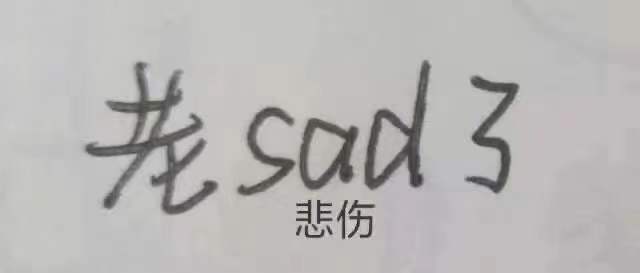 老sad了
悲伤